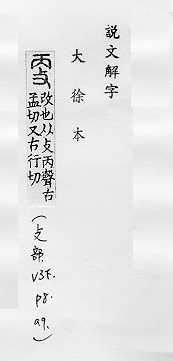 説文解字
大徐本
㪅改也从攴丙聲古
孟切又古行切
(攴部 V3下. P8. a9.)